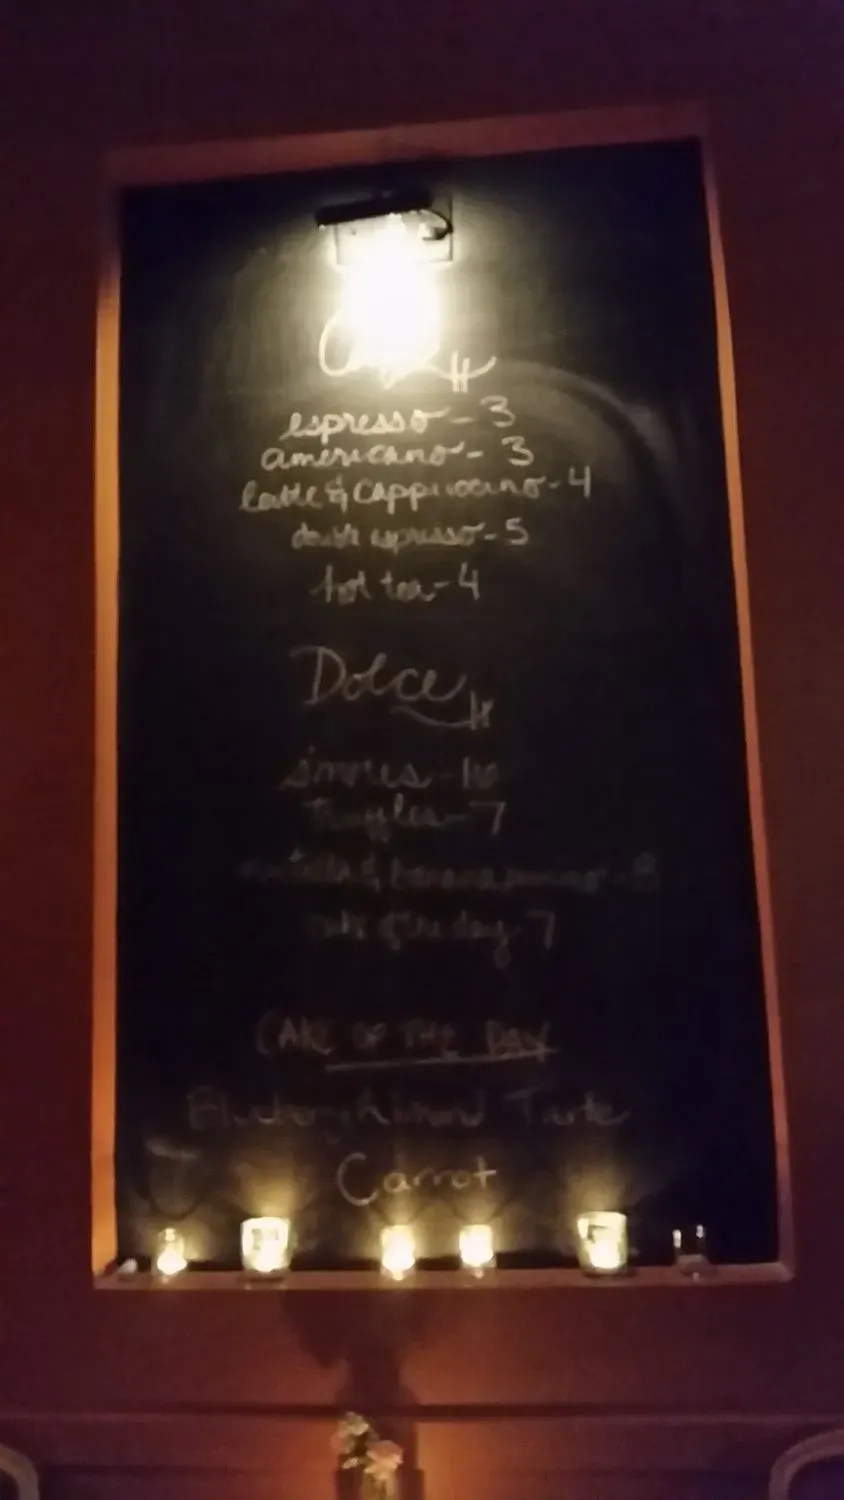 espresso - 3
americano - 3
latte & cappuccino - 4
double espresso - 5
hot tea - 4
Dolce
s'mores - 10
truffles - 7
nutella & banana panino - 8
cake of the day - 7
CAKE OF THE DAY
Blueberry Almond Tarte
Carrot